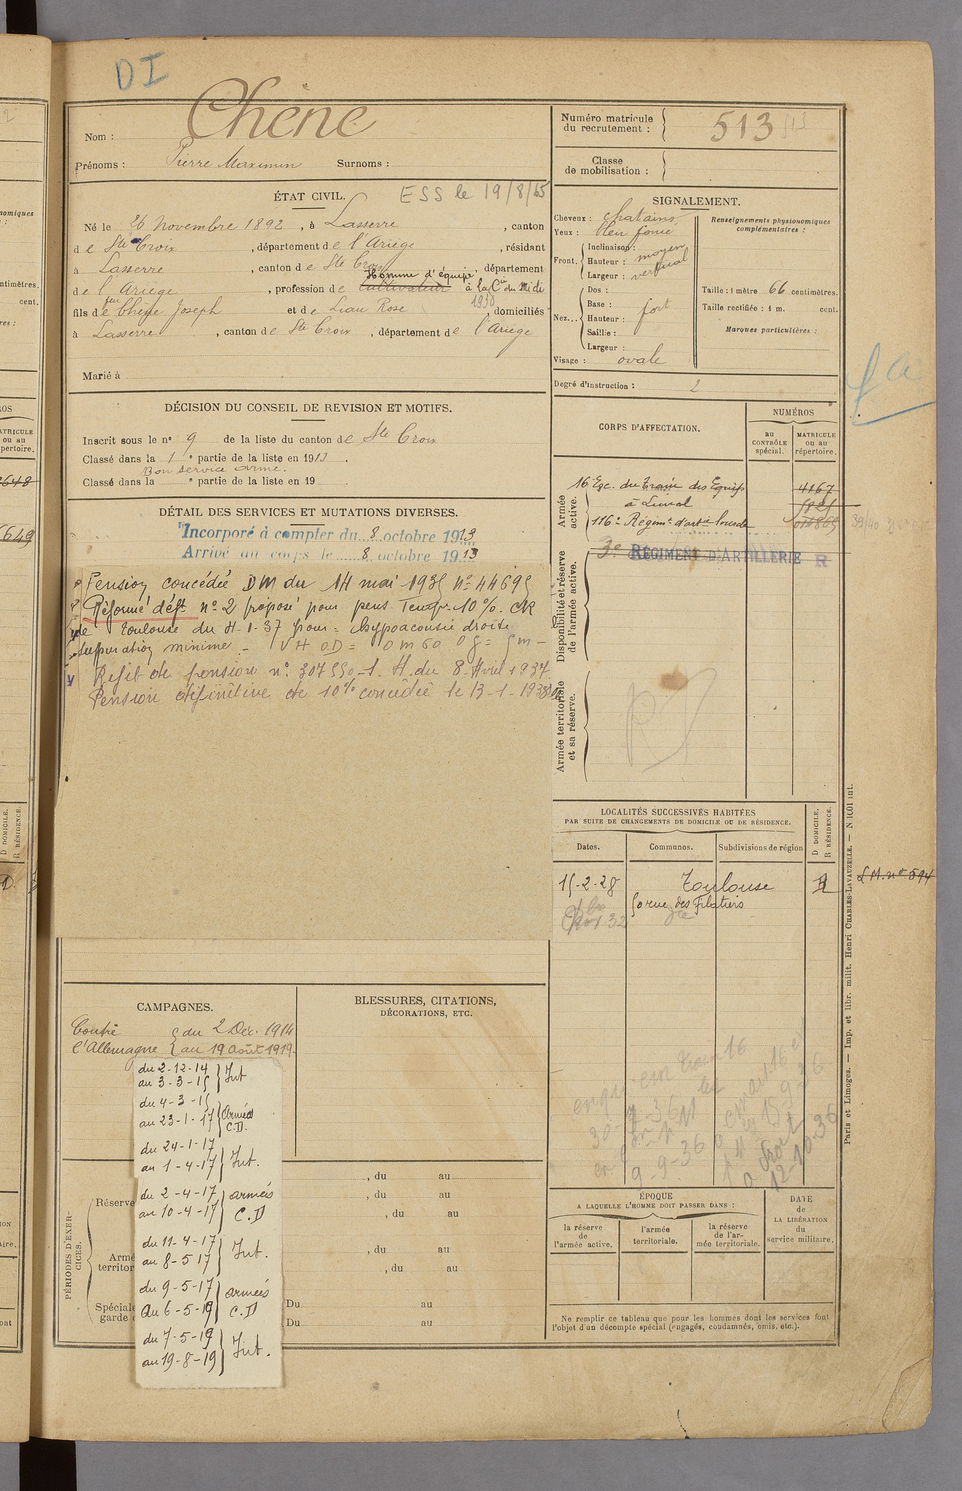 DI
Nom : Chêne
Prénoms : Pierre Maximin Surnoms :
Numéro matricule du recrutement : 513
Classe de mobilisation :
ÉTAT CIVIL. ESS le 19/8/65
Né le 26 Novembre 1892, à Lasserre, canton
de Ste Croix, département de l'Ariège, résidant
à Lasserre, canton de Ste Croix, département
Homme d'équipe
de l'Ariège, profession de cultivateur à la Cie du Midi
1930
fils de feu Chêne Joseph et de Lian Rose, domiciliés
à Lasserre, canton de Ste Croix, département de l'Ariège
Marié à
SIGNALEMENT.
Cheveux : chatains
Yeux : bleu foncé
Front. Inclinaison : moyen
Hauteur : vertical
Largeur :
Nez... Dos :
Base : fort
Hauteur :
Saillie :
Largeur :
Visage : ovale
Renseignements physionomiques complémentaires :
Taille : 1 mètre 66 centimètres.
Taille rectifiée : 1 m. cent.
Marques particulières :
Degré d'instruction : 2
DÉCISION DU CONSEIL DE REVISION ET MOTIFS.
Inscrit sous le n° 9 de la liste du canton de Ste Croix
Classé dans la 1e partie de la liste en 1913.
Bon service armé.
Classé dans la e partie de la liste en 19
DÉTAIL DES SERVICES ET MUTATIONS DIVERSES.
Incorporé à compter du 8 octobre 1913
Arrivé au corps le 8 octobre 1913
Pension concédée DM du 14 mai 1935 n° 44695
Réformé déft n° 2 proposé pour pens. Temp. 10%. CR
de Toulouse du 4-1-37 pour : hypoacousie droite
suppuration minime - VH OD = 0m60 Og = 5m -
Rejet de pension n° 307550-1. A. du 8 Avril 1937
Pension définitive de 10% concédée le 13-1-1938
CORPS D'AFFECTATION.
NUMÉROS
au CONTRÔLE spécial.
MATRICULE ou au répertoire.
Armée active.
16 Esc. du Train des Equip
à Lunel
4167
116e Régimt d'artie lourde
Disponibilité et réserve de l'armée active.
3e RÉGIMENT D'ARTILLERIE R
Armée territoriale et sa réserve.
LOCALITÉS SUCCESSIVES HABITÉES
PAR SUITE DE CHANGEMENTS DE DOMICILE OU DE RÉSIDENCE.
Dates. Communes. Subdivisions de région
D DOMICILE.
R RÉSIDENCE.
15-2-28 Toulouse R
50 rue des Filatiers
L.M. n° 594
CAMPAGNES.
Contre l'Allemagne
du 2 Déc. 1914
au 19 Août 1919
du 2-12-14
au 3-3-15 Int
du 4-3-15
au 23-1-17 Armées C.D.
du 24-1-17
au 1-4-17 Int.
du 2-4-17
au 10-4-17 armées C.D
du 11-4-17
au 8-5 17 Int.
du 9-5-17
au 6-5-19 armées C.D
du 7-5-19
au 19-8-19 Int.
BLESSURES, CITATIONS,
DÉCORATIONS, ETC.
PÉRIODES D'EXERCICES.
Réserve
, du au
, du au
, du au
Armé
territor
, du au
, du au
Spéciale
garde
Du au
Du au
9-9-36
12-10-36
ÉPOQUE
A LAQUELLE L'HOMME DOIT PASSER DANS :
la réserve de l'armée active.
l'armée territoriale.
la réserve de l'armée territoriale.
DATE de LA LIBÉRATION du service militaire.
Ne remplir ce tableau que pour les hommes dont les services font
l'objet d'un décompte spécial (engagés, condamnés, omis, etc.).
Paris et Limoges. — Imp. et libr. milit. Henri CHARLES-LAVAUZELLE. —